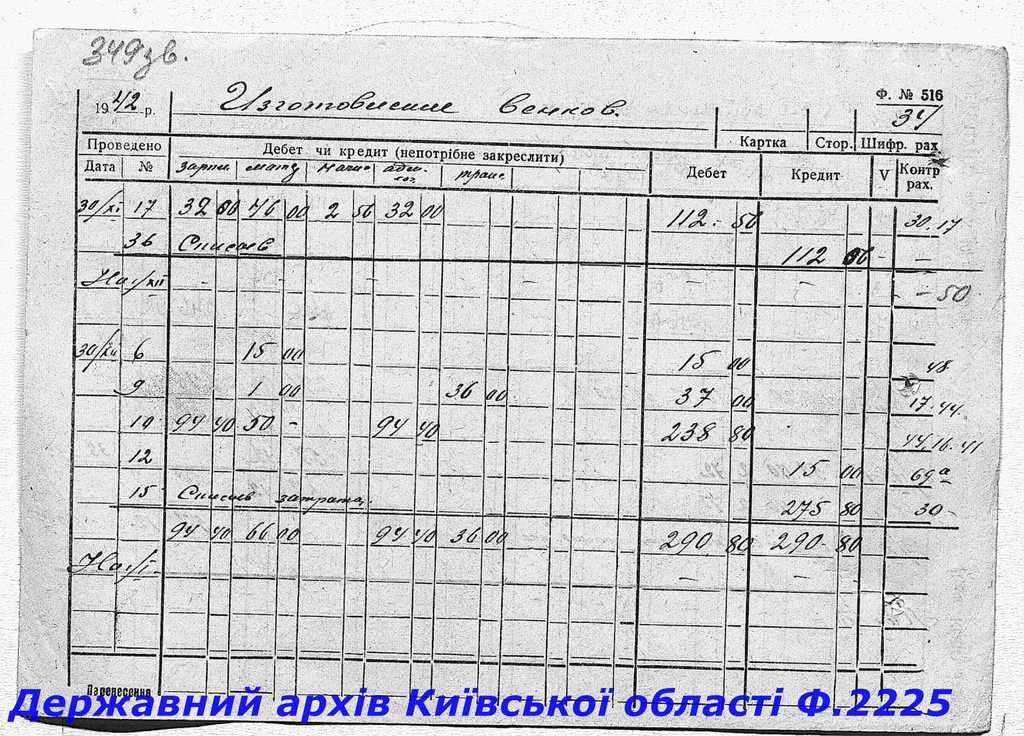 349зв.
Ф. № 516
1942 р. Изготовление венков. 34
Картка Стор. Шифр. рах.
Проведено Дебет чи кредит (непотрібне закреслити) Дебет Кредит V Контр рах.
Дата № зарпл. матер транс
30/XI 17 32 00 46 00 2 56 32 00 112 56 30.17
36 Списано 112 56 - -
На 1/XII - - - - - - 50
30/XII 6 15 00 15 00 48
9 1 00 36 00 37 00 17.44
10 94 40 50 - 94 40 238 80 44.16.41
12 15 00 69а
15 Списано затрата 275 80 30 -
94 40 66 00 94 40 36 00 290 80 290 80
На 1/I - -
Перенесення
Державний архів Київської області Ф.2225